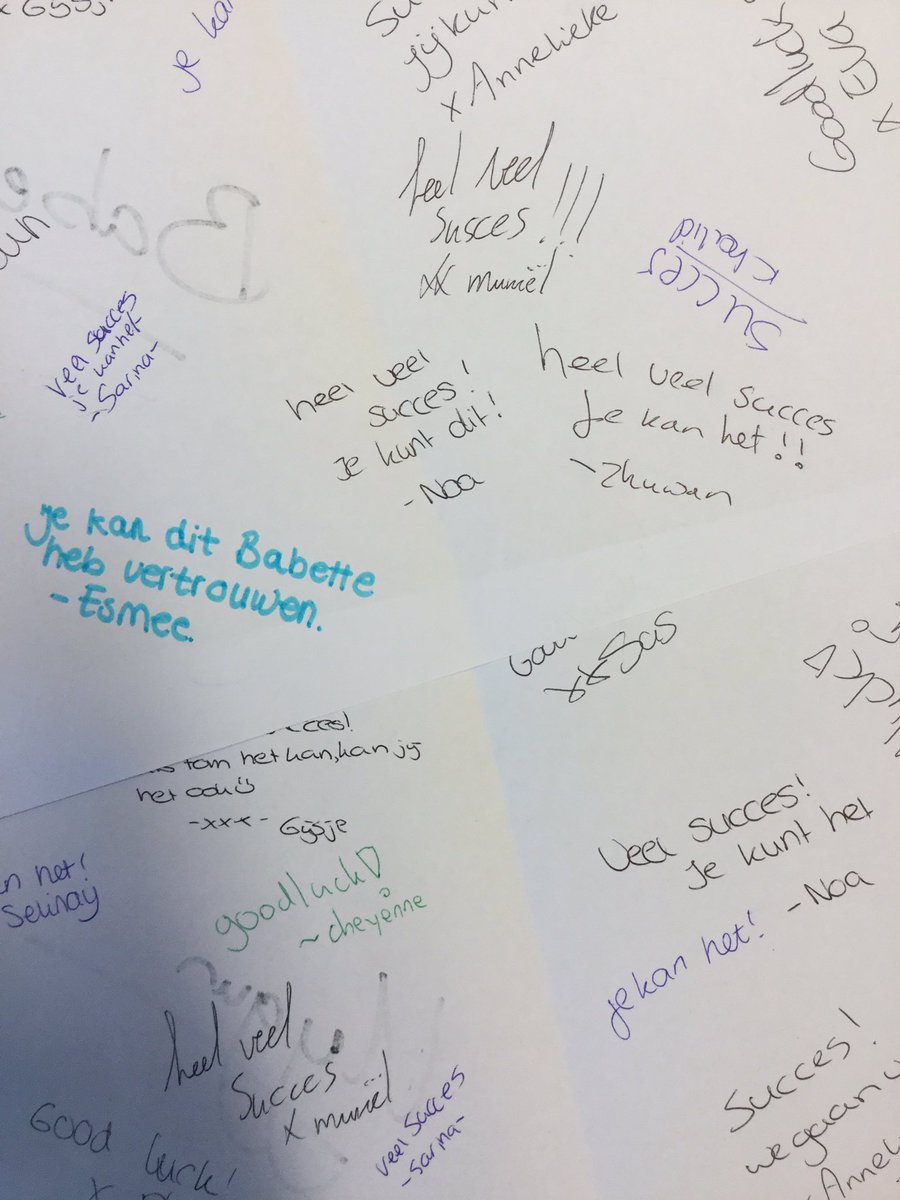 x Gijsje
je kan
jij kun
x Annelieke
Goodluck
x Eva
heel veel
Susces!!!
xx muriël
succes
Khalid
Babe
veel succes
je kan het
-Sarina-
heel veel
succes!
Je kunt dit!
-Noa
heel veel succes
Je kan het!!
-Zhuwan
je kan dit Babette
heb vertrouwen.
-Esmee.
xxSus
cces!
tom het kan, kan jij
het ook
-xxx- Gijsje
n het!
Selinay
goodluck
~cheyenne
Veel succes!
Je kunt het
-Noa
je kan het!
heel veel
Succes
x muriël
veel succes
-sarina-
Good
luck!
Succes!
we gaan
Anne